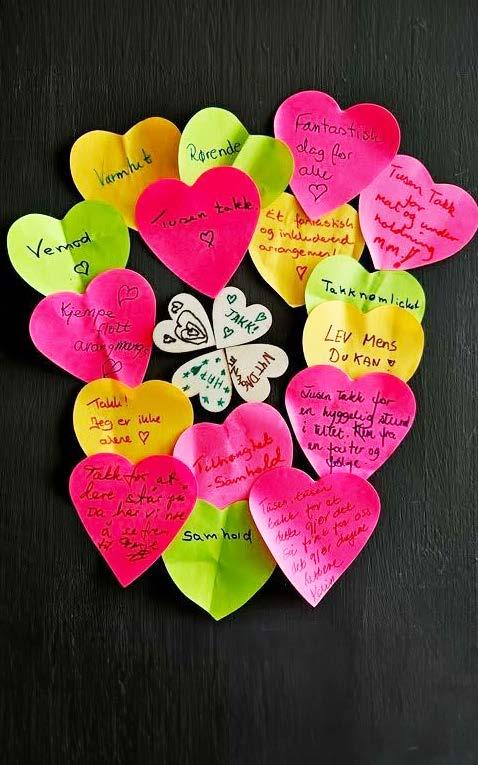 Varmhet
Rørende
Fantastisk
dag for
alle
Tusen Takk
for
mat og under
holdning
MM!
Vemod
Tusen takk
Et fantastisk
og inkluderend
arrangement!
Takknemlighet
Kjempe
flott
arangmengs
TAKK!
NYTDAG
HÅP
LEV Mens
Du KAN
Takk!
Jeg er ikke
alene
Tusen Takk for
en hyggelig stund
i teltet. Klem fra
en faiter og
følge.
Tilhørighet
- Samhold
Takk for at
dere står på
Da har vi noe
å se frem
Samhold
Tusen, tusen
takk for at
dette gjør det
så fint for oss
det gjør dagene
lettere